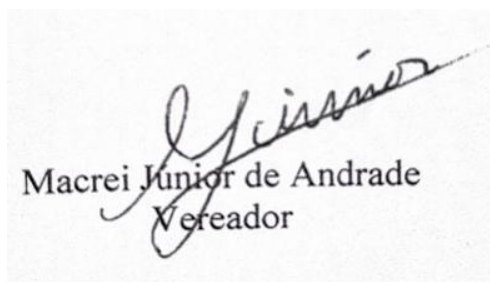 Macrei Júnior de Andrade
Vereador